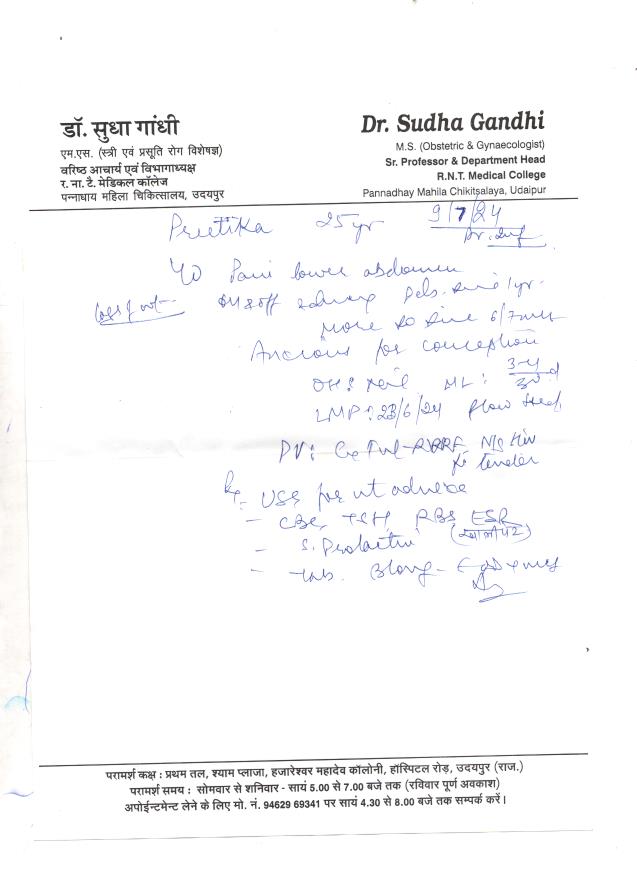 डॉ. सुधा गांधी
एम.एस. (स्त्री एवं प्रसूति रोग विशेषज्ञ)
वरिष्ठ आचार्य एवं विभागाध्यक्ष
र. ना. टै. मेडिकल कॉलेज
पन्नाधाय महिला चिकित्सालय, उदयपुर
Dr. Sudha Gandhi
M.S. (Obstetric & Gynaecologist)
Sr. Professor & Department Head
R.N.T. Medical College
Pannadhay Mahila Chikitsalaya, Udaipur
9/7/24
Preetika 25 yr
Pain lower abdomen
on & off since 1 yr.
More so since 6/7
Anxious for conception
OH: Nil ML: 3-4/30 d
LMP: 23/6/24 flow
PV: Cx
tender
USG for ut adnexa
- CBC, TSH, RBS ESR
- S. Prolactin (खाली पेट)
- Tab.
परामर्श कक्ष : प्रथम तल, श्याम प्लाजा, हजारेश्वर महादेव कॉलोनी, हॉस्पिटल रोड़, उदयपुर (राज.)
परामर्श समय : सोमवार से शनिवार - सायं 5.00 से 7.00 बजे तक (रविवार पूर्ण अवकाश)
अपोईन्टमेन्ट लेने के लिए मो. नं. 94629 69341 पर सायं 4.30 से 8.00 बजे तक सम्पर्क करें।